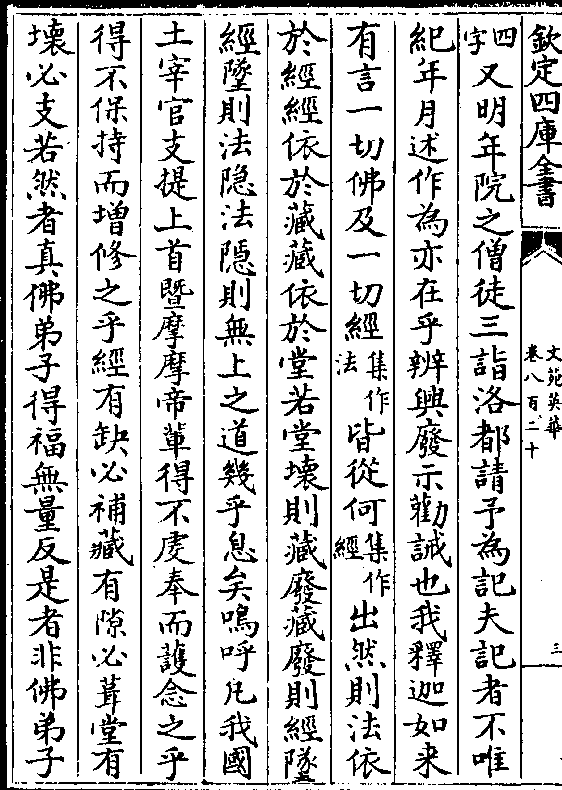 欽定四庫全書
文苑英華
卷八百二十
三
四字又明年院之僧徒三詣洛都請予為記夫記者不唯
紀年月述作為亦在乎辨興廢示勸誡也我釋迦如来
有言一切佛及一切經集作法皆從何集作經出然則法依
於經經依於藏藏依於堂若堂壞則藏廢藏廢則經墜
經墜則法隐法隱則無上之道幾乎息矣嗚呼凡我國
土宰官支提上首暨摩摩帝輩得不虔奉而護念之乎
得不保持而增修之乎經有缺必補藏有隙必葺堂有
壞必支若然者真佛弟子得福無量反是者非佛弟子